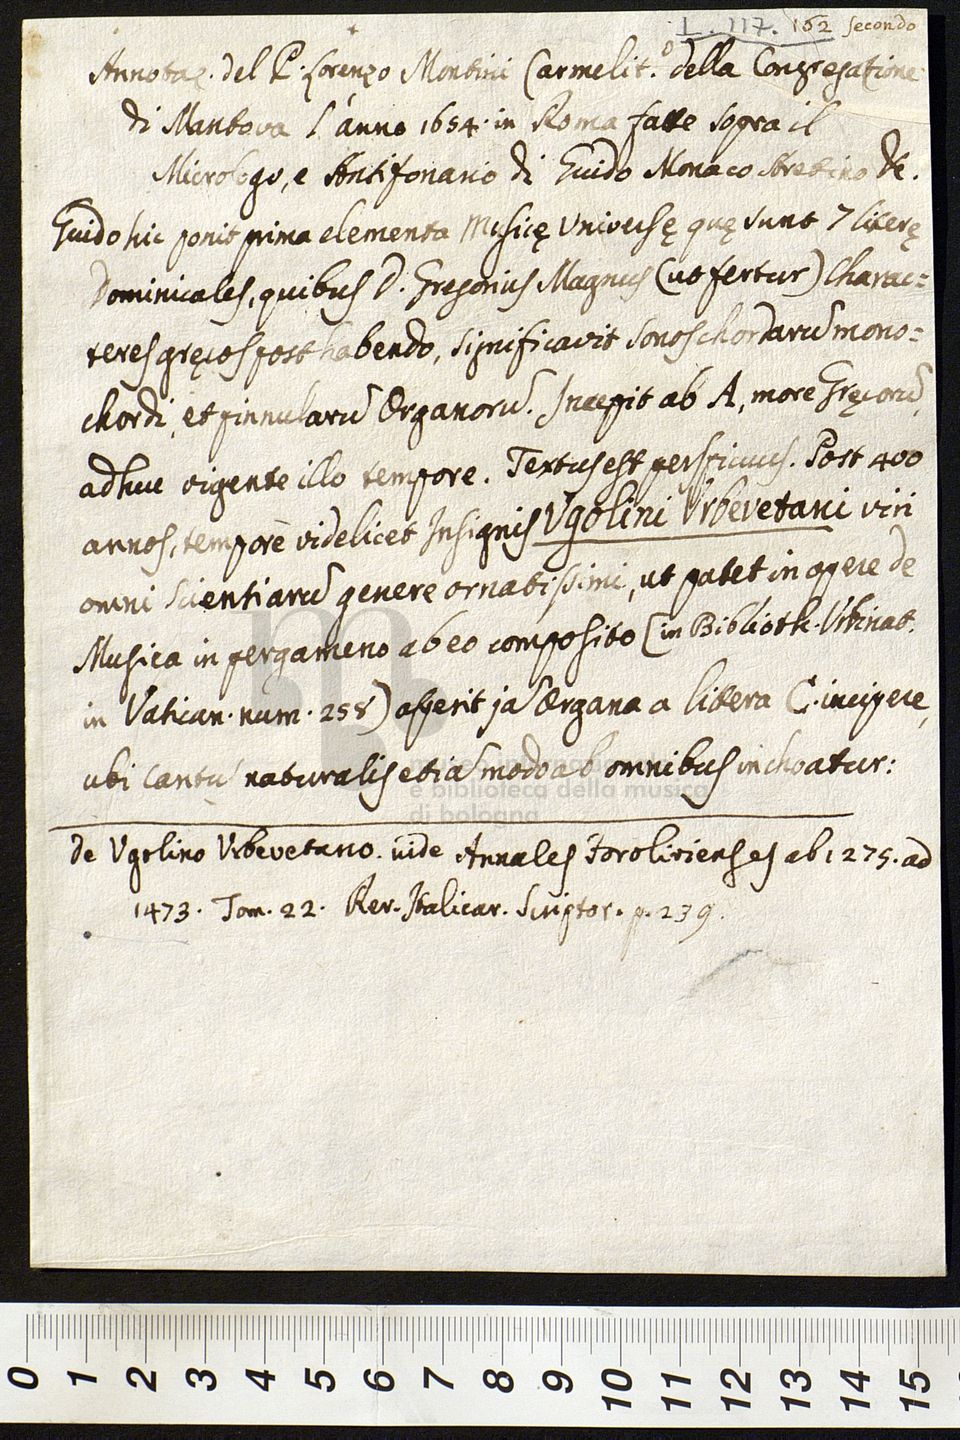 L. 117. 152 secondo
Annotaz. del P. Lorenzo Montini Carmelit.º della Congregatione
di Mantova l'anno 1654. in Roma fatte sopra il
Micrologo, e Antifonario di Guido Monaco Aretino &c.
Guido hic ponit prima elementa Musicę Universę quę sunt 7 literę
Dominicales, quibus D. Gregorius Magnus (ut fertur) Charac=
teres gręcos post habendo, significavit sonos chordarū mono=
chordi, et pinnularū Organorū. Incepit ab A, more Gręcorū,
adhuc vigente illo tempore. Textus est perspicuus. Post 400
annos, tempore videlicet Insignis Ugolini Urbevetani viri
omni scientiarū genere ornatissimi, ut patet in opere de
Musica in pergameno ab eo composito (in Biblioth. Urbinat.
in Vatican. num. 258) asserit jā Organa a littera C. incipere,
ubi cantū naturalis etiā modo ab omnibus inchoatur:
museo internazionale
e biblioteca della musica
di bologna
de Ugolino Urbevetano. vide Annales Forolivienses ab 1275. ad
1473. Tom. 22. Rer. Italicar. Scriptor. p. 239.
0 1 2 3 4 5 6 7 8 9 10 11 12 13 14 15